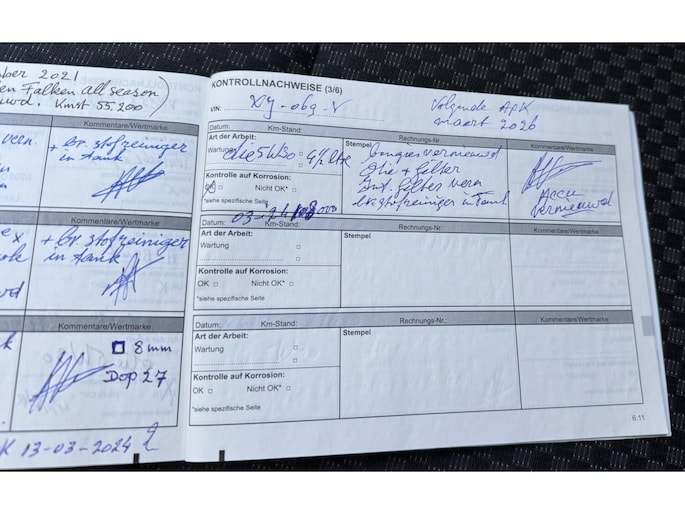 2021
Falken all season)
Kmst 55.200
Kommentare/Wertmarke
+ br. stofreiniger
in tank
+ br. stofreiniger
in tank
Kommentare/Wertmarke
8 mm
Dop 27
13-03-2024
KONTROLLNACHWEISE (3/6)
VIN:
Volgende APK
maart 2026
Datum: Km-Stand: Rechnungs-Nr.: Kommentare/Wertmarke
Art der Arbeit: Stempel
Wartung 5W30 4½ Ltr
bougies vernieuwd
Olie + filter
Int. filter vern
br. stofreiniger in tank
Accu
vernieuwd
Kontrolle auf Korrosion:
OK Nicht OK*
*siehe spezifische Seite
Datum: Km-Stand: Rechnungs-Nr.: Kommentare/Wertmarke
Art der Arbeit: Stempel
Wartung
Kontrolle auf Korrosion:
OK Nicht OK*
*siehe spezifische Seite
Datum: Km-Stand: Rechnungs-Nr.: Kommentare/Wertmarke
Art der Arbeit: Stempel
Wartung
Kontrolle auf Korrosion:
OK Nicht OK*
*siehe spezifische Seite
6.11